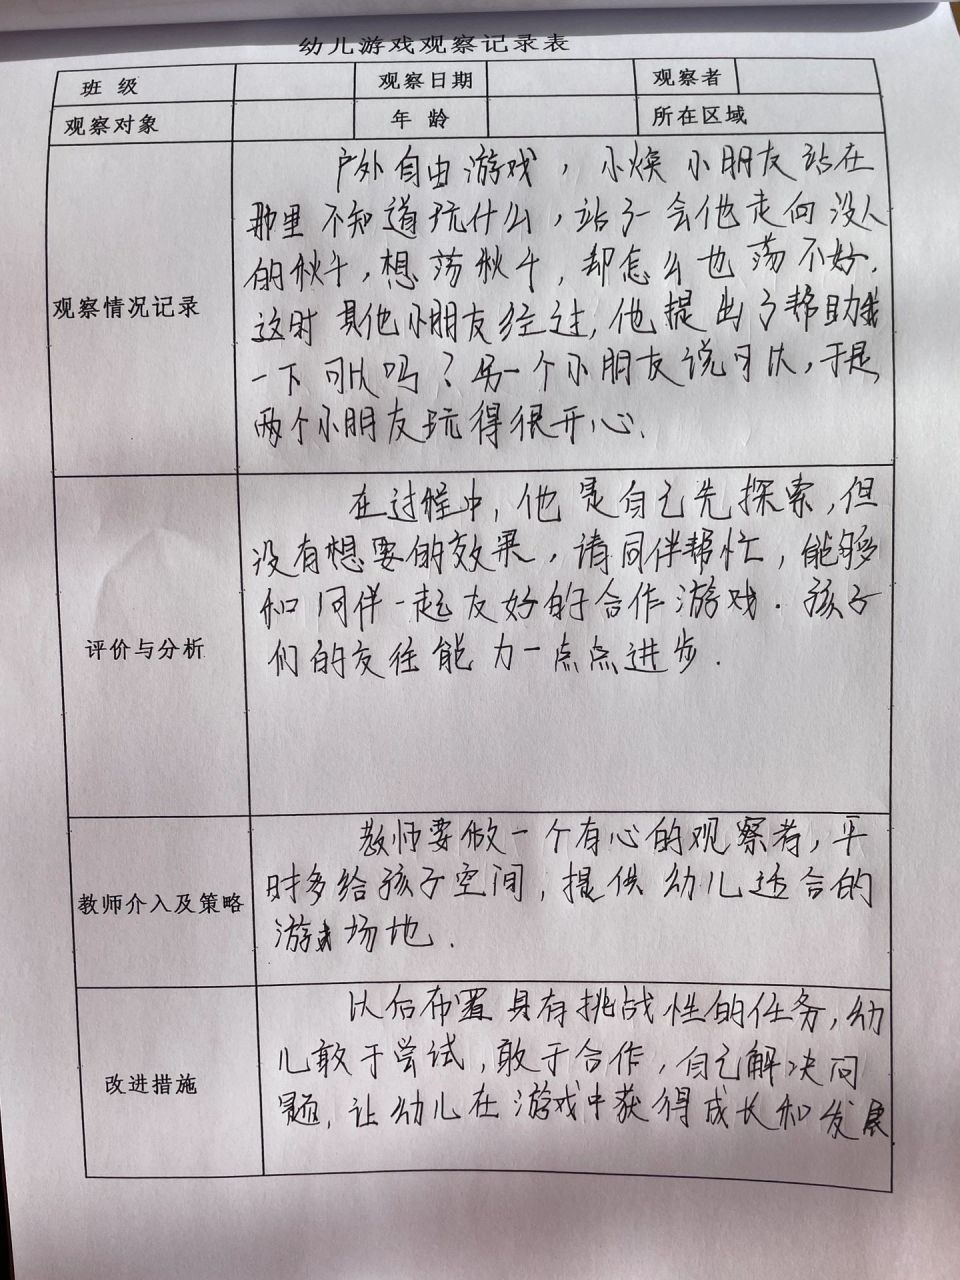 幼儿游戏观察记录表
班级 观察日期 观察者
观察对象 年龄 所在区域
观察情况记录
户外自由游戏，小焕小朋友站在
那里不知道玩什么，站了一会他走向没人
的秋千，想荡秋千，却怎么也荡不好.
这时其他小朋友经过，他提出了帮助我
一下可以吗？另一个小朋友说可以，于是
两个小朋友玩得很开心.
评价与分析
在过程中，他是自己先探索，但
没有想要的效果，请同伴帮忙，能够
和同伴一起友好的合作游戏.孩子
们的交往能力一点点进步.
教师介入及策略
教师要做一个有心的观察者，平
时多给孩子空间，提供幼儿适合的
游戏场地.
改进措施
以后布置具有挑战性的任务，幼
儿敢于尝试，敢于合作，自己解决问
题，让幼儿在游戏中获得成长和发展